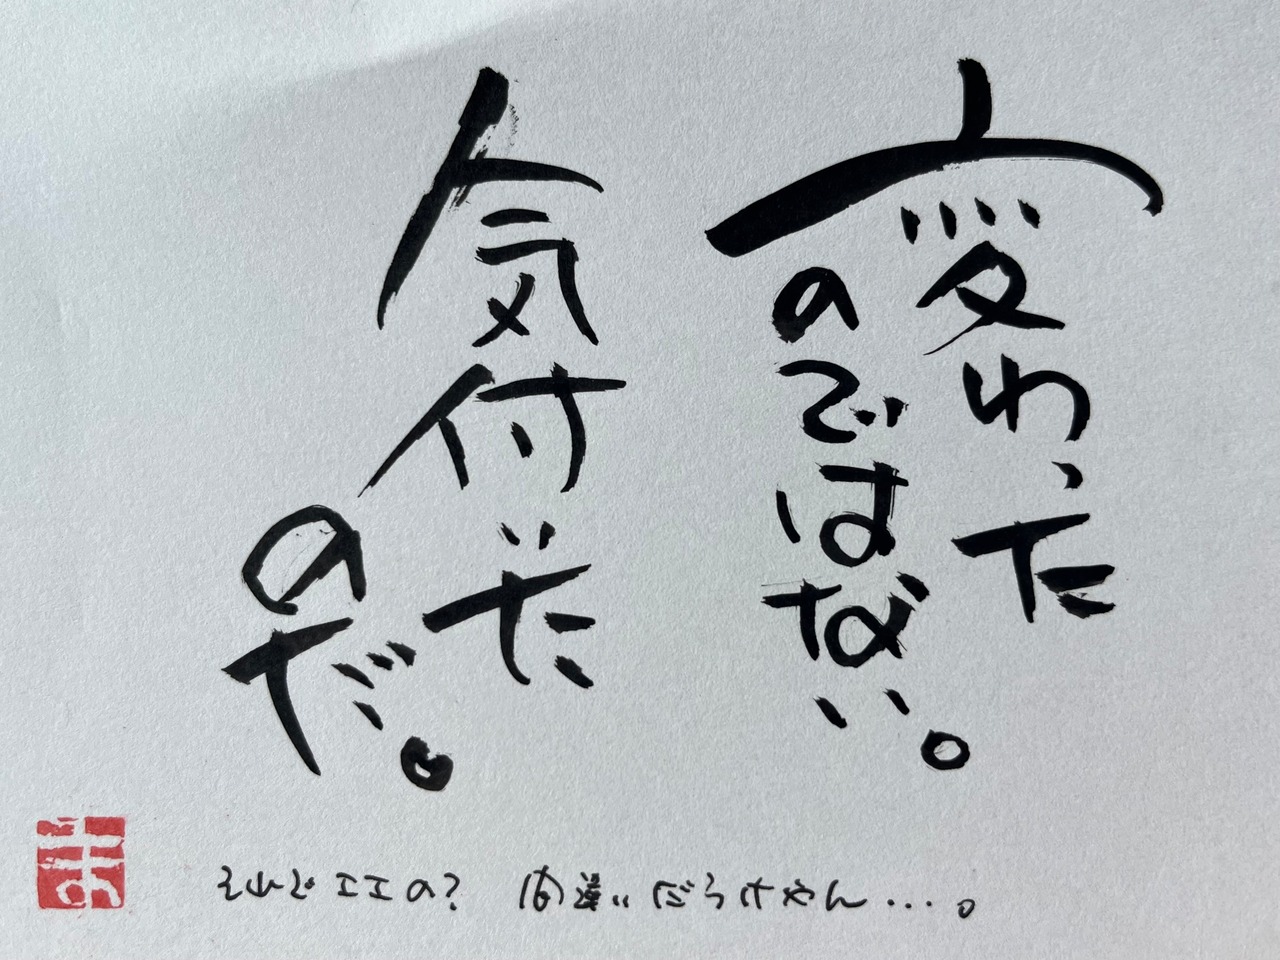 変わった
のではない。
気付いた
のだ。
それでエエの? 間違いだらけやん…。
ま